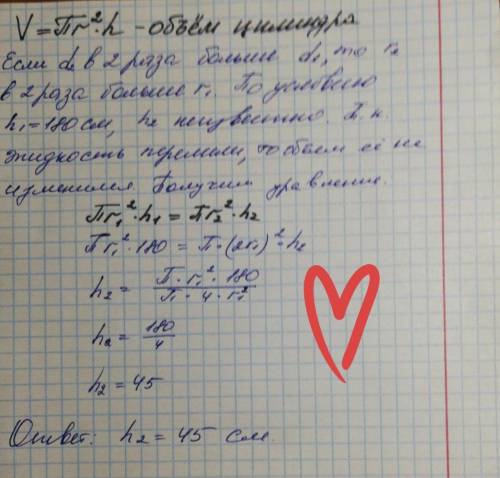 V = Пr²·h – объём цилиндра
Если d₂ в 2 раза больше d₁, то r₂
в 2 раза больше r₁. По условию
h₁ = 180 см, h₂ неизвестно. Т.к.
жидкость перелили, то объем её не
изменился. Получим уравнение.
Пr₁²·h₁ = Пr₂²·h₂
Пr₁²·180 = П·(2r₁)²·h₂
h₂ = П·r₁²·180 / П·4·r₁²
h₂ = 180/4
h₂ = 45
Ответ: h₂ = 45 см.